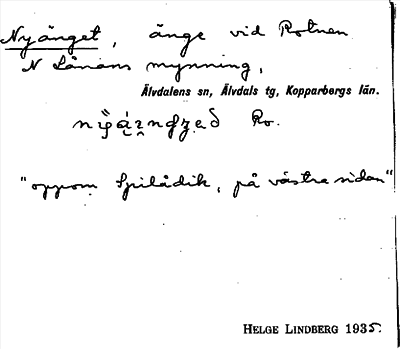 Nyänget, änge vid Rotnen
N Lånåns mynning.
Älvdalens sn, Älvdals tg, Kopparbergs län.
Ro.
"oppom Spilådik, på västra sidan"
HELGE LINDBERG 1935.